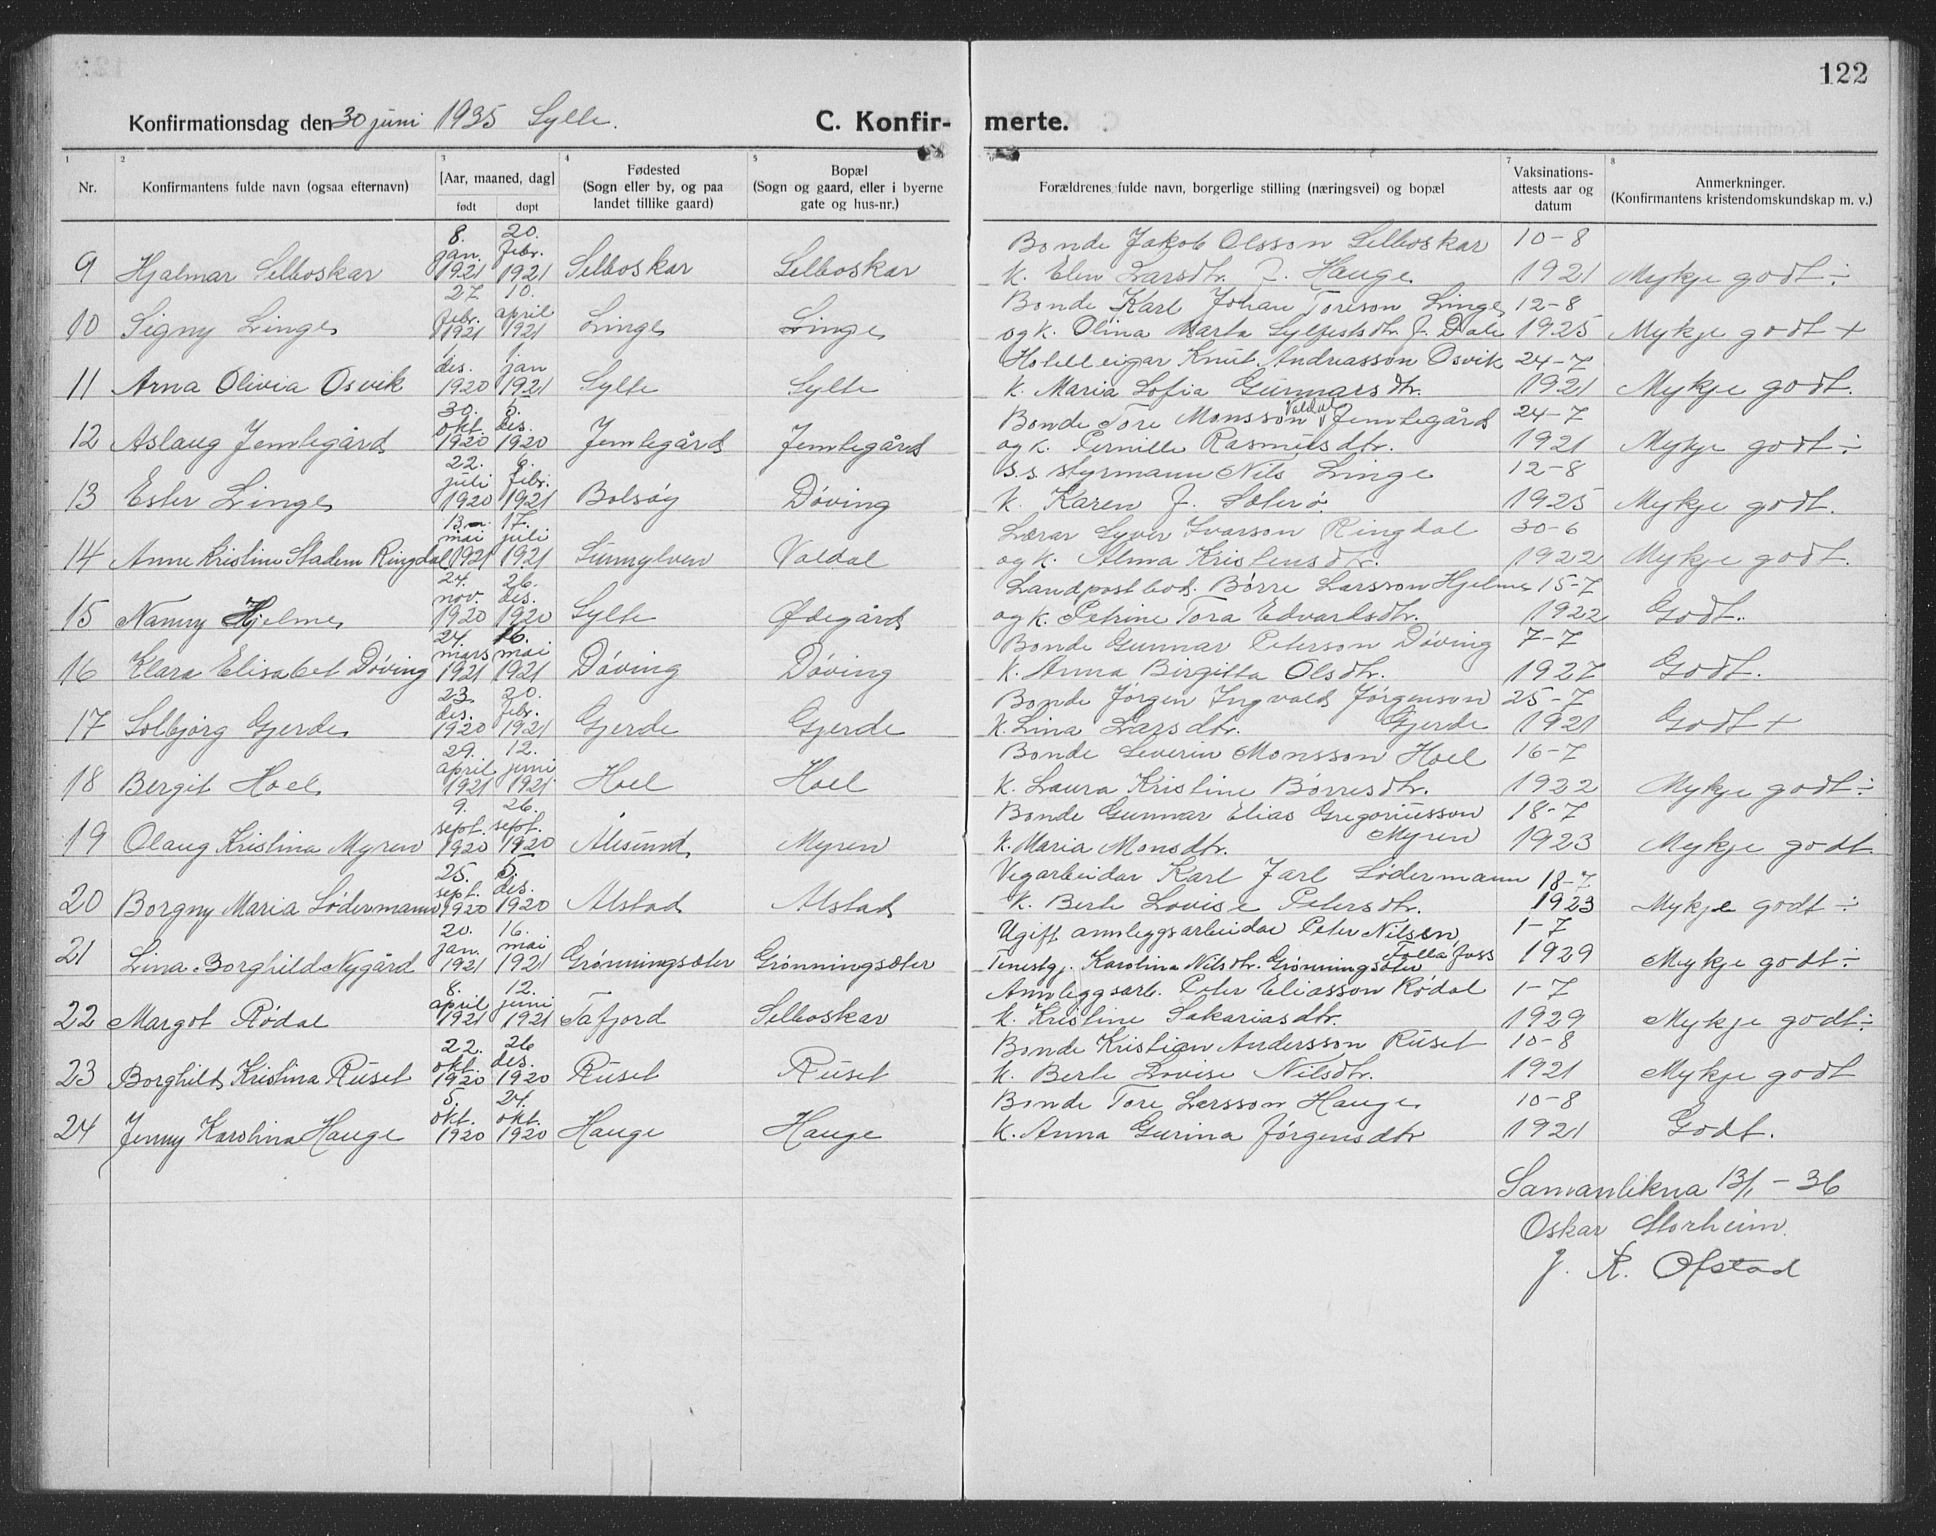 122
Konfirmationsdag den 30 juni 1935 Sylte.
C. Konfirmerte.
1 2 3 4 5 7 8
Nr. Konfirmantens fulde navn (ogsaa efternavn) [Aar, maaned, dag] født døpt Fødested (Sogn eller by, og paa landet tillike gaard) Bopæl (Sogn og gaard, eller i byerne gate og hus-nr.) Forældrenes fulde navn, borgerlige stilling (næringsvei) og bopæl Vaksinations-attests aar og datum Anmerkninger. (Konfirmantens kristendomskundskap m. v.)
9 Hjalmar Selboskar 8. jan. 1921 20. febr. 1921 Selboskar Selboskar Bonde Jakob Olsson Selboskar 10-8
k. Elen Larsdtr. f. Hauge 1921 Mykje godt ÷
10 Signy Linge 27 febr. 1921 10. april 1921 Linge Linge Bonde Karl Johan Toreson Linge 12-8
og k. Olina Marta Sylfestsdtr. f. Dale 1925 Mykje godt +
11 Arna Olivia Osvik des. 1920 jan 1921 Sylte Sylte Hotelleigar Knut Andreasson Osvik 24-7
k. Maria Sofia Gunnarsdtr. 1921 Mykje godt.
12 Aslaug Jemtegård 30. okt. 1920 5. des. 1920 Jemtegård Jemtegård Bonde Tore Monsson Valdal Jemtegård 24-7
og k. Pernille Rasmusdtr. 1921 Mykje godt ÷
13 Ester Linge 22. juli 1920 6. febr. 1921 Bolsøy Døving S.S. styrmann Nils Linge 12-8
k. Karen f. Sæterø 1925 Mykje godt.
14 Anne Kristine Stadem Ringdal 13. mai 1921 17. juli 1921 Sunnylven Valdal Lærar Syver Ivarson Ringdal 30-6
og k. Alma Kristensdtr. 1922 Mykje godt.
15 Nanny Hjelme 24. nov. 1920 26. des. 1920 Sylte Ødegård Landpostbod. Børre Larsson Hjelme 15-7
og k. Petrine Tora Edvardsdtr. 1922 Godt.
16 Klara Elisabet Døving 24. mars 1921 16. mai 1921 Døving Døving Bonde Gunnar Peterson Døving 7-7
k. Anna Birgitta Olsdtr. 1927 Godt.
17 Solbjørg Gjerde 23 des. 1920 20. febr. 1921 Gjerde Gjerde Bonde Jørgen Ingvald Jørgenson 25-7
k. Lina Larsdtr. Gjerde 1921 Godt +
18 Bergit Hoel 29. april 1921 12. juni 1921 Hoel Hoel Bonde Severin Monsson Hoel 16-7
k. Laura Kristine Børresdtr. 1922 Mykje godt ÷
19 Olaug Kristina Myren 9. sept. 1920 26. sept. 1920 Ålesund Myren Bonde Gunnar Elias Gregoriusson 18-7
k. Maria Monsdtr. Myren 1923 Mykje godt.
20 Borgny Maria Södermann 25. sept. 1920 5. des. 1920 Alstad Alstad Vegarbeidar Karl Jarl Södermann 18-7
k. Berte Lovise Petersdtr. 1923 Mykje godt ÷
21 Lina Borghild Nygård 20. jan. 1921 16. mai 1921 Grønningsæter Grønningsæter Ugift annleggsarbeidar Peter Nilsen, Follafoss 1-7
Tenestgj. Karolina Nilsdtr. Grønningsæter 1929 Mykje godt ÷
22 Margot Rødal 8. april 1921 12. juni 1921 Tafjord Selboskar Annleggsarb. Peter Eliasson Rødal 1-7
k. Kristine Sakariasdtr. 1929 Mykje godt ÷
23 Borghild Kristina Ruset 22. okt. 1920 26 des. 1920 Ruset Ruset Bonde Kristian Andersson Ruset 10-8
k. Berte Lovise Nilsdtr. 1921 Mykje godt
24 Jenny Karolina Hauge 5. okt. 1920 24. okt. 1920 Hauge Hauge Bonde Tore Larsson Hauge 10-8
k. Anna Gurina Jørgensdtr 1921 Godt.
Samanlikna 13/1 - 36
Oskar Storheim.
J. K. Ofstad